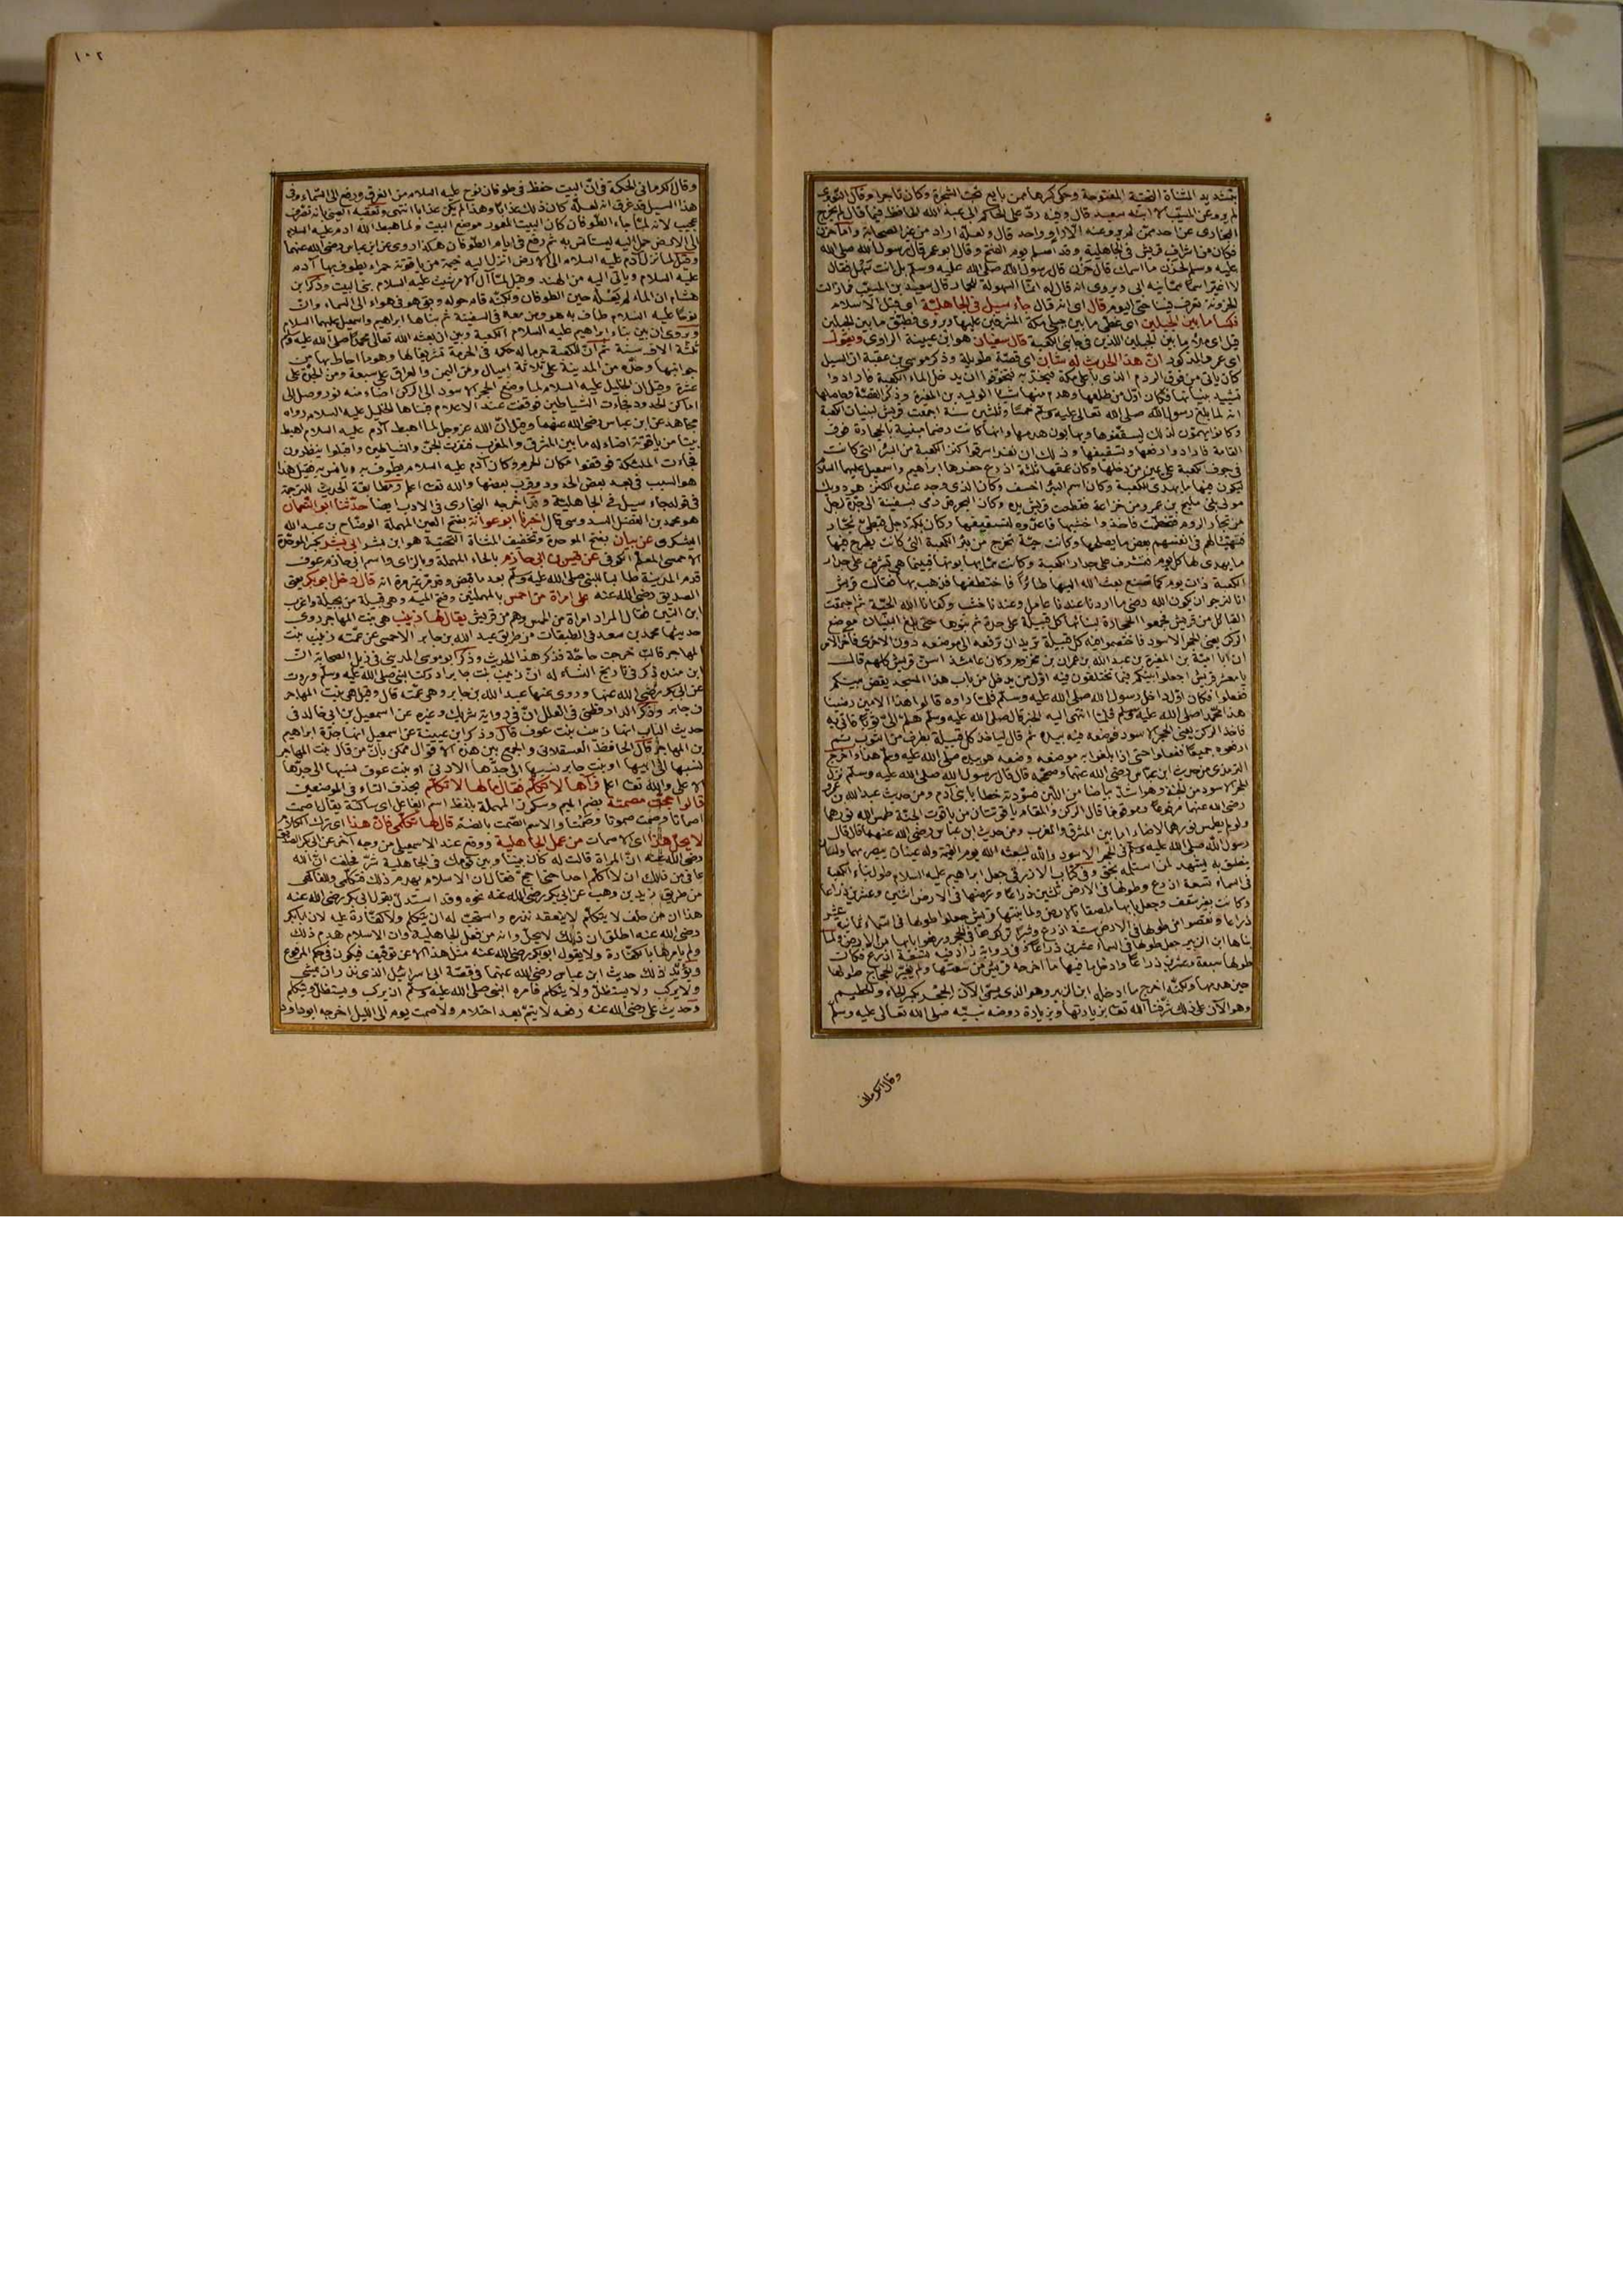 بتشديد المثناة التحتية المفتوحة وحكى كسرها ممن بايع تحت الشجرة وكان تاجرا وقال النووى
لم يرو عن المسيب الا ابنه سعيد قال وفيه رد على الحاكم ابى عبد الله الحافظ فيما قال لم يخرج
البخارى عن احد ممن لم يرو عنه الا راو واحد قال ولعله اراد من غير الصحابة واما حزن
فكان من اشراف قريش فى الجاهلية وقد اسلم يوم الفتح وقال ابو عمر قال رسول الله صلى الله
عليه وسلم لحزن ما اسمك قال حزن قال رسول الله صلى الله عليه وسلم بل انت سهل فقال
لا اغير اسما سمانيه ابى ويروى انه قال له انما السهولة للحمار قال سعيد بن المسيب فما زالت
الحزونة تعرف فينا حتى اليوم قال اى انه قال جاء سيل فى الجاهلية اى قبل الاسلام
فكسا ما بين الجبلين اى غطى ما بين جبلى مكة المشرفين عليها ويروى فطبق ما بين الجبلين
قيل اى ملأ ما بين الجبلين اللذين فى جانبى الكعبة قال سفيان هو ابن عيينة الراوى ويقول
اى عمرو المذكور ان هذا الحديث له شأن اى قصة طويلة وذكر موسى بن عقبة ان السيل
كان يأتى من فوق الردم الذى باعلى مكة فتخوفوا ان يدخل الماء الكعبة فارادوا
تشييد بنيانها فكان اول من طلعها وهدم منها شيئا الوليد بن المغيرة وذكر القصة
انه لما بلغ رسول الله صلى الله تعالى عليه وسلم خمسا وثلثين سنة اجمعت قريش لبنيان الكعبة
وكانوا يهمون لذلك ليسقفوها ويهابون هدمها وانها كانت رضما مبنية بالحجارة فوق
القامة فارادوا رفعها وتسقيفها وذلك ان نفرا سرقوا كنز الكعبة من البئر التى كانت
فى جوف الكعبة على يمين من دخلها وكان عمقها ثلثة اذرع حفرها ابراهيم واسمعيل عليهما السلام
ليكون فيها ما يهدى للكعبة وكان اسم البئر اخسف وكان الذى وجد عنده الكنز هو دويك
مولى لبنى مليح بن عمرو من خزاعة فقطعت قريش يده وكان البحر قد رمى بسفينة الى جدة لرجل
من تجار الروم فتحطمت فاخذوا خشبها فاعدوه لتسقيفها وكان بمكة رجل قبطى نجار
فتهيأ لهم فى انفسهم بعض ما يصلحها وكانت حية تخرج من بئر الكعبة التى كانت يطرح فيها
ما يهدى لها كل يوم فتشرف على جدار الكعبة وكانت مما يهابونها فبينما هى تشرف على جدار
الكعبة ذات يوم كما تصنع بعث الله اليها طائرا فاختطفها فذهب بها فقالت قريش
انا لنرجو ان يكون الله رضى ما اردنا عندنا عامل وعندنا خشب وكفانا الله الحية ثم اجتمعت
القبائل من قريش فجمعوا الحجارة لبنائها كل قبيلة على حدة ثم بنوها حتى بلغ البنيان موضع
الركن يعنى الحجر الاسود فاختصموا فيه كل قبيلة تريد ان ترفعه الى موضعه دون الاخرى فآخر الامر
ان ابا امية بن المغيرة بن عبد الله بن عمر بن مخزوم وكان عامئذ اسن قريش كلهم قال
يا معشر قريش اجعلوا بينكم فيما تختلفون فيه اول من يدخل من باب هذا المسجد يقضى بينكم
ففعلوا فكان اول داخل رسول الله صلى الله عليه وسلم فلما راوه قالوا هذا الامين رضينا
هذا محمد صلى الله عليه وسلم فلما انتهى اليه الخبر قال صلى الله عليه وسلم هلم الى ثوبا فأتى به
فاخذ الركن يعنى الحجر الاسود فوضعه فيه بيده ثم قال ليأخذ كل قبيلة بطرف من الثوب ثم
ارفعوه جميعا ففعلوا حتى اذا بلغوا به موضعه وضعه هو بيده صلى الله عليه وسلم هذا واخرج
الترمذى من حديث ابن عباس رضى الله عنهما وصححه قال قال رسول الله صلى الله عليه وسلم نزل
الحجر الاسود من الجنة وهو اشد بياضا من اللبن فسودته خطايا بنى آدم ومن حديث عبد الله بن عمرو
رضى الله عنهما مرفوعا وموقوفا قال الركن والمقام ياقوتتان من ياقوت الجنة طمس الله نورهما
ولو لم يطمس نورهما لاضاء ما بين المشرق والمغرب ومن حديث ابن عباس رضى الله عنهما قال قال
رسول الله صلى الله عليه وسلم فى الحجر الاسود والله ليبعثه الله يوم القيمة وله عينان يبصر بهما ولسان
ينطق به يشهد لمن استلمه بحق وفى كتاب الازرقى جعل ابراهيم عليه السلام طول بناء الكعبة
فى السماء تسعة اذرع وطولها فى الارض ثلثين ذراعا وعرضها فى الارض اثنين وعشرين ذراعا
وكانت بغير سقف وجعل بابها ملصقا بالارض ولما بنتها قريش جعلوا طولها فى السماء ثمانية عشر
ذراعا ونقصوا من طولها فى الارض ستة اذرع وشبرا تركوها فى الحجر ورفعوا بابها من الارض ولما
بناها ابن الزبير جعل طولها فى السماء عشرين ذراعا وفى رواية زاد فيه تسعة اذرع فكانت
طولها سبعة وعشرين ذراعا وادخل فيها ما اخرجه قريش من سعتها ولم يغير الحجاج طولها
حين هدمها ولكنه اخرج ما ادخله ابن الزبير وهو الذى يسمى الآن الحجر بكسر الحاء والحطيم
وهو الآن على ذلك شرفنا الله تعالى بزيارتها وبزيارة روضة نبيه صلى الله تعالى عليه وسلم
وقال الكرمانى
١٠٢
وقال الكرمانى الحكمة فى ان البيت حفظ فى طوفان نوح عليه السلام من الغرق ورفع الى السماء وفى
هذا السيل قد غرق انه لعله كان ذلك عذابا وهذا لم يكن عذابا انتهى وتعقبه العينى بانه تصرف
عجيب لانه لما جاء الطوفان كان البيت المعمور موضع البيت ولما اهبط الله ادم عليه السلام
الى الارض حمل اليه ليستأنس به ثم رفع فى ايام الطوفان هكذا روى عن ابن عباس رضى الله عنهما
وقيل لما نزل آدم عليه السلام الى الارض انزل اليه خيمة من ياقوتة حمراء يطوف بها آدم
عليه السلام ويأتى اليه من الهند وقيل لما آل الامر لشيث عليه السلام بنى البيت وذكر ابن
هشام ان الماء لم يعله حين الطوفان ولكنه قام حوله وبقى هو فى هواء الى السماء وان
نوحا عليه السلام طاف به هو ومن معه فى السفينة ثم بناها ابراهيم واسمعيل عليهما السلام
ويروى ان بين بناء ابراهيم عليه السلام الكعبة وبين ان بعث الله تعالى محمدا صلى الله عليه وسلم
ثلثة آلاف سنة ثم ان للكعبة حرما له حكمه فى الحرمة تشريفا لها وهو ما احاط بها من
جوانبها وحده من المدينة على ثلاثة اميال ومن اليمن والعراق على سبعة ومن الجدة على
عشرة وقيل ان الخليل عليه السلام لما وضع الحجر الاسود الى الركن اضاء منه نور وصل الى
اماكن الحدود فجاءت الشياطين فوقفت عند الاعلام فبناها الخليل عليه السلام رواه
مجاهد عن ابن عباس رضى الله عنهما وقيل ان الله عز وجل لما اهبط آدم عليه السلام اهبط
بيتا من ياقوتة اضاء له ما بين المشرق والمغرب فنفرت الجن والشياطين واقبلوا ينظرون
فجاءت الملئكة فوقفوا مكان الحرم وكان آدم عليه السلام يطوف به ويأنس به فقيل هذا
هو السبب فى بعد بعض الحدود وقرب بعضها والله تعالى اعلم ومطابقة الحديث للترجمة
فى قوله جاء سيل فى الجاهلية وقد اخرجه البخارى فى الادب ايضا حدثنا ابو النعمان
هو محمد بن الفضل السدوسى قال اخبرنا ابو عوانة بفتح العين المهملة الوضاح بن عبد الله
اليشكرى عن بيان بفتح الموحدة وتخفيف المثناة التحتية هو ابن بشر ابى بشر بكسر الموحدة
الاحمسى المعلم الكوفى عن قيس بن ابى حازم بالحاء المهملة وبالزاى واسم ابى حازم عوف
قدم المدينة طالبا للنبى صلى الله عليه وسلم بعد ما قبض انه قال دخل ابو بكر يعنى
الصديق رضى الله عنه على امرأة من احمس بالمهملتين وفتح الميم وهى قبيلة من بجيلة واغرب
ابن التين فقال المراد امرأة من الحمس وهم من قريش يقال لها زينب هى بنت المهاجر روى
حديثها محمد بن سعد فى الطبقات من طريق عبد الله بن جابر الاحمسى عن عمته زينب بنت
المهاجر قالت خرجت حاجة فذكر هذا الحديث وذكر ابو موسى المدينى فى ذيل الصحابة ان
ابن منده ذكر فى تاريخ النساء له ان زينب بنت جابر ادركت النبى صلى الله عليه وسلم وروت
عن ابى بكر رضى الله عنه وروى عنها عبد الله بن جابر وهى عمته قال وقيل هى بنت المهاجر
بن جابر وذكر الدارقطنى فى العلل ان فى رواية شريك وغيره عن اسمعيل بن ابى خالد فى
حديث الباب انها زينب بنت عوف قال وذكر ابن عيينة عن اسمعيل انها جدة ابراهيم
بن المهاجر قال الحافظ العسقلانى والجمع بين هذه الاقوال ممكن بأن من قال بنت المهاجر
نسبها الى ابيها او بنت جابر نسبها الى جدها الادنى او بنت عوف نسبها الى جدها
الاعلى والله تعالى اعلم فرآها لا تكلم فقال ما لها لا تكلم بحذف التاء فى الموضعين
قالوا حجت مصمتة بضم الميم وسكون المهملة بلفظ اسم الفاعل اى ساكتة يقال اصمت
اصماتا وصمت صموتا وصمتا والاسم الصمت بالضم قال لها تكلمى فان هذا اى ترك الكلام
لا يحل هذا اى الاصمات من عمل الجاهلية ووقع عند الاسمعيلى من وجه آخر عن ابى بكر الصديق
رضى الله عنه ان المرأة قالت له كان بيننا وبين قومك فى الجاهلية شر فحلفت ان الله
عافانى من ذلك ان لا اكلم احدا حتى احج فقال ان الاسلام يهدم ذلك فتكلمى وللفاكهى
من طريق زيد بن وهب عن ابى بكر رضى الله عنه نحوه وقد استدل بقول ابى بكر رضى الله عنه
هذا ان من حلف لا يتكلم لا ينعقد نذره واستحب له ان يتكلم ولا كفارة عليه لان ابا بكر
رضى الله عنه اطلق ان ذلك لا يحل وانه من فعل الجاهلية وان الاسلام هدم ذلك
ولم يأمرها بالكفارة ولا يقول ابو بكر رضى الله عنه مثل هذا الا عن توقيف فيكون فى حكم المرفوع
ويؤيد ذلك حديث ابن عباس رضى الله عنهما وقصة ابى اسرائيل الذى نذر ان يمشى
ولا يركب ولا يستظل ولا يتكلم فامره النبى صلى الله عليه وسلم ان يركب ويستظل ويتكلم
وحديث على رضى الله عنه رفعه لا يتم بعد احتلام ولا صمت يوم الى الليل اخرجه ابو داود